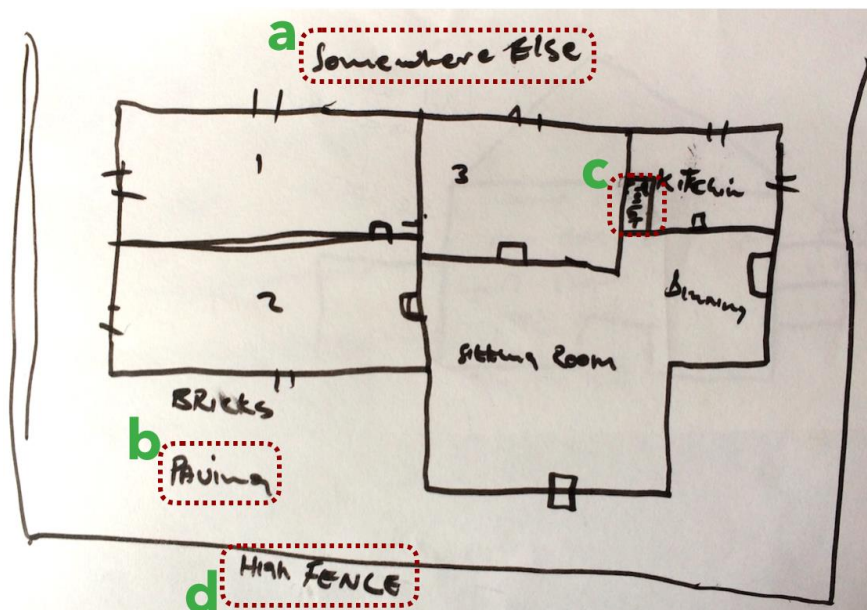 a
Somewhere Else
1
3
c
Kitchin
2
Dinning
Sitting Room
BRICKS
b
Paving
d
High FENCE